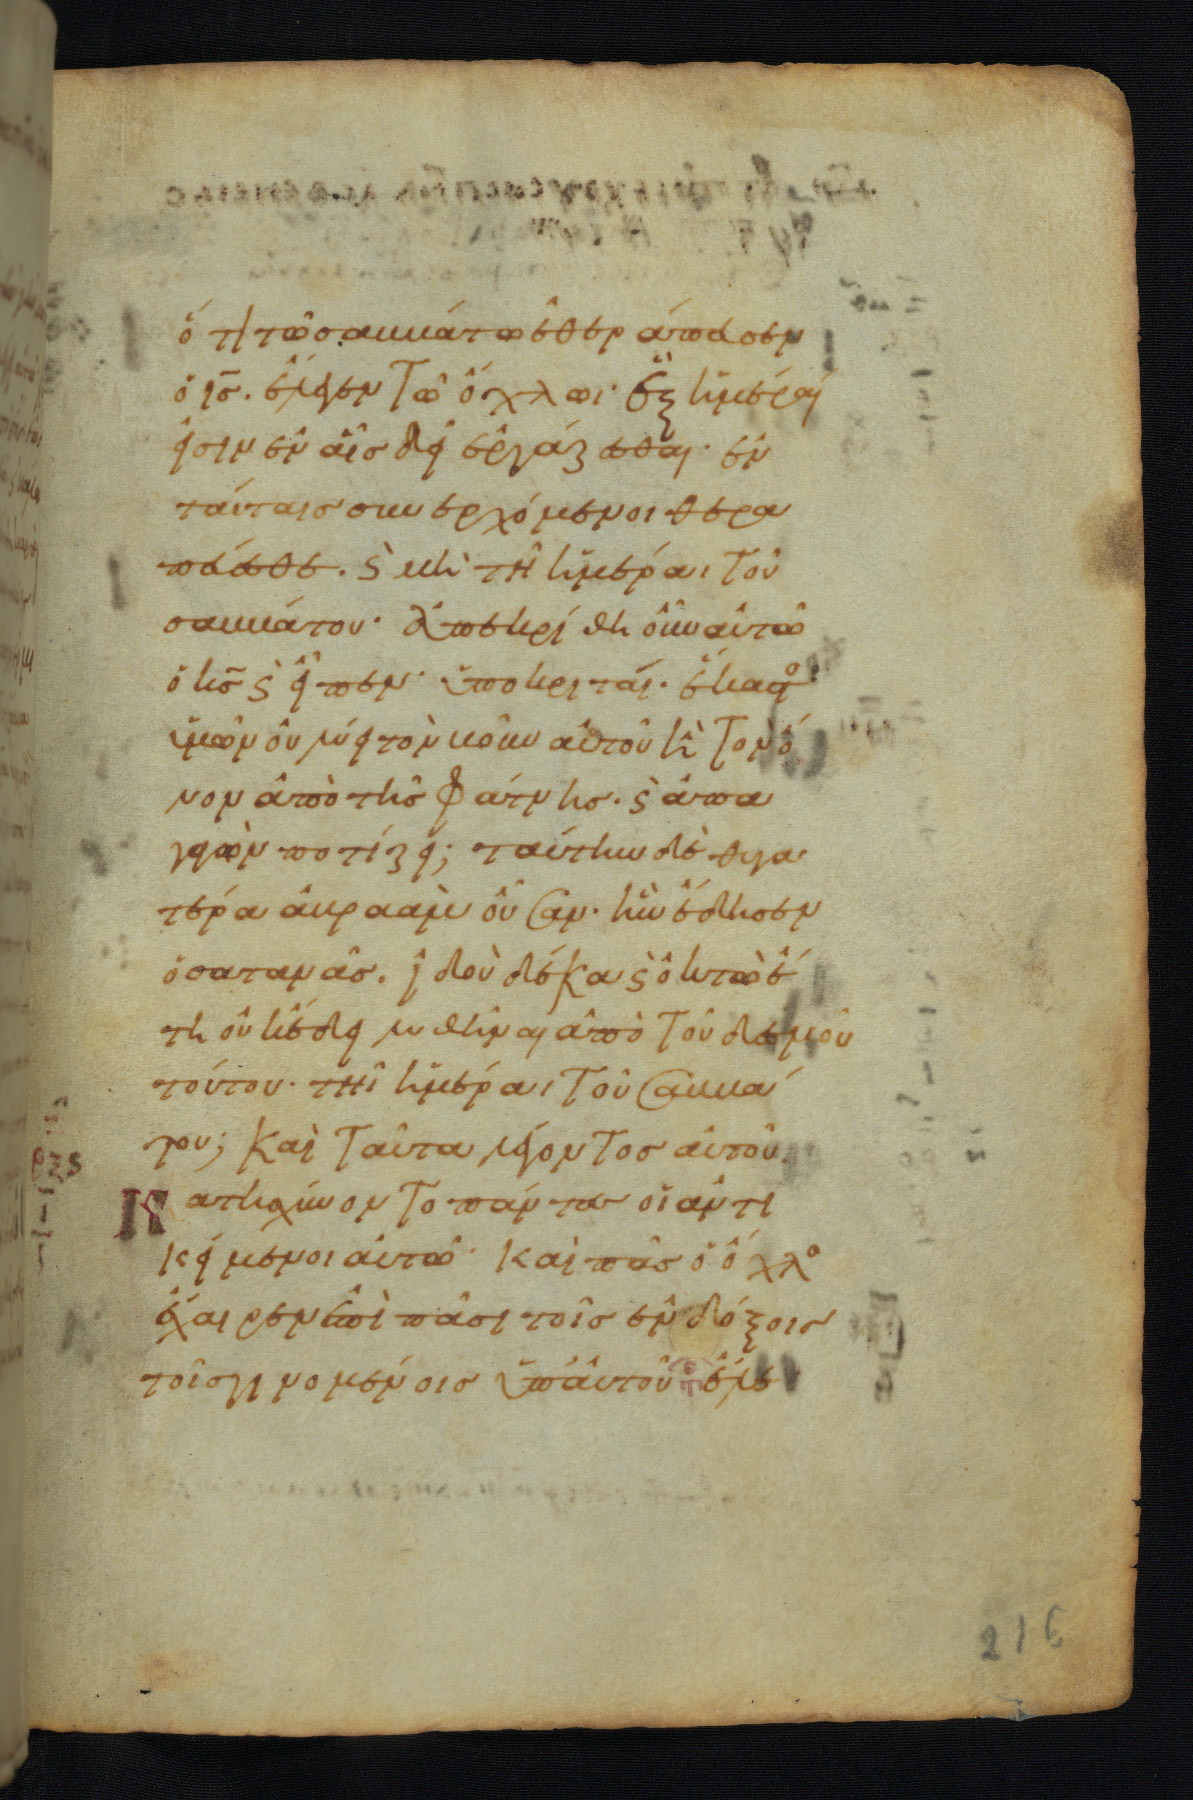 ὅτι τῶ σαββάτω ἐθεράπευσεν
ὁ ἰς̅. ἔλεγεν τῶ ὄχλωι· ἓξ ἡμέραι
εἰσιν ἐν αἷς δεῖ ἐργάζεσθαι· ἐν
ταύταις οὖν ἐρχόμενοι θερα
πεύεσθε. ϗ μὴ τῆ ἡμέραι τοῦ
σαββάτου· ἀπεκρίθη οὖν αὐτῶ
ὁ ἰς̅ ϗ εἶπεν· ὑποκριταί· ἕκαστο
ὑμῶν οὐ λύει τὸν βοῦν αὐτοῦ ἢ τὸν ὄ
νον ἀπὸ τῆς φάτνης· ϗ ἀπα
γαγὼν ποτίζει; ταύτην δὲ θυγα
τέρα ἀβραὰμ οὖσαν· ἣν ἔδησεν
ὁ σατανᾶς. ἰδοὺ δέκα ϗ ὀκτὼ ἔ
τη οὐκ ἔδει λυθῆναι ἀπὸ τοῦ δεσμοῦ
τούτου· τῆι ἡμέραι τοῦ σαββά
του; καὶ ταῦτα λέγοντος αὐτοῦ.
ρξς
Κατησχύνοντο πάντες οἱ ἀντι
κείμενοι αὐτῶ· καὶ πᾶς ὁ ὄχλο
ἔχαιρεν ἐπὶ πᾶσι τοῖς ἐνδόξοις
τοῖς γινομένοις ὑπ' αὐτοῦ ἔλε
216